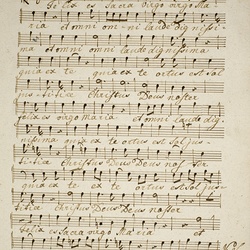 Felix es Sacra virgo virgo Ma-
ria et omni omni laude dignissi-
ma et omni omni laude dignissima
quia ex te quia ex te ortus est sol
Justitiæ Christus Deus noster
felix es virgo Maria et omni laude dig-
nissima quia ex te ortus est sol jus-
titiæ Christus Deus Deus noster
quia ex te ex te ortus est sol jus-
titiæ Christus Deus Deus noster
felix es sacra virgo Maria et